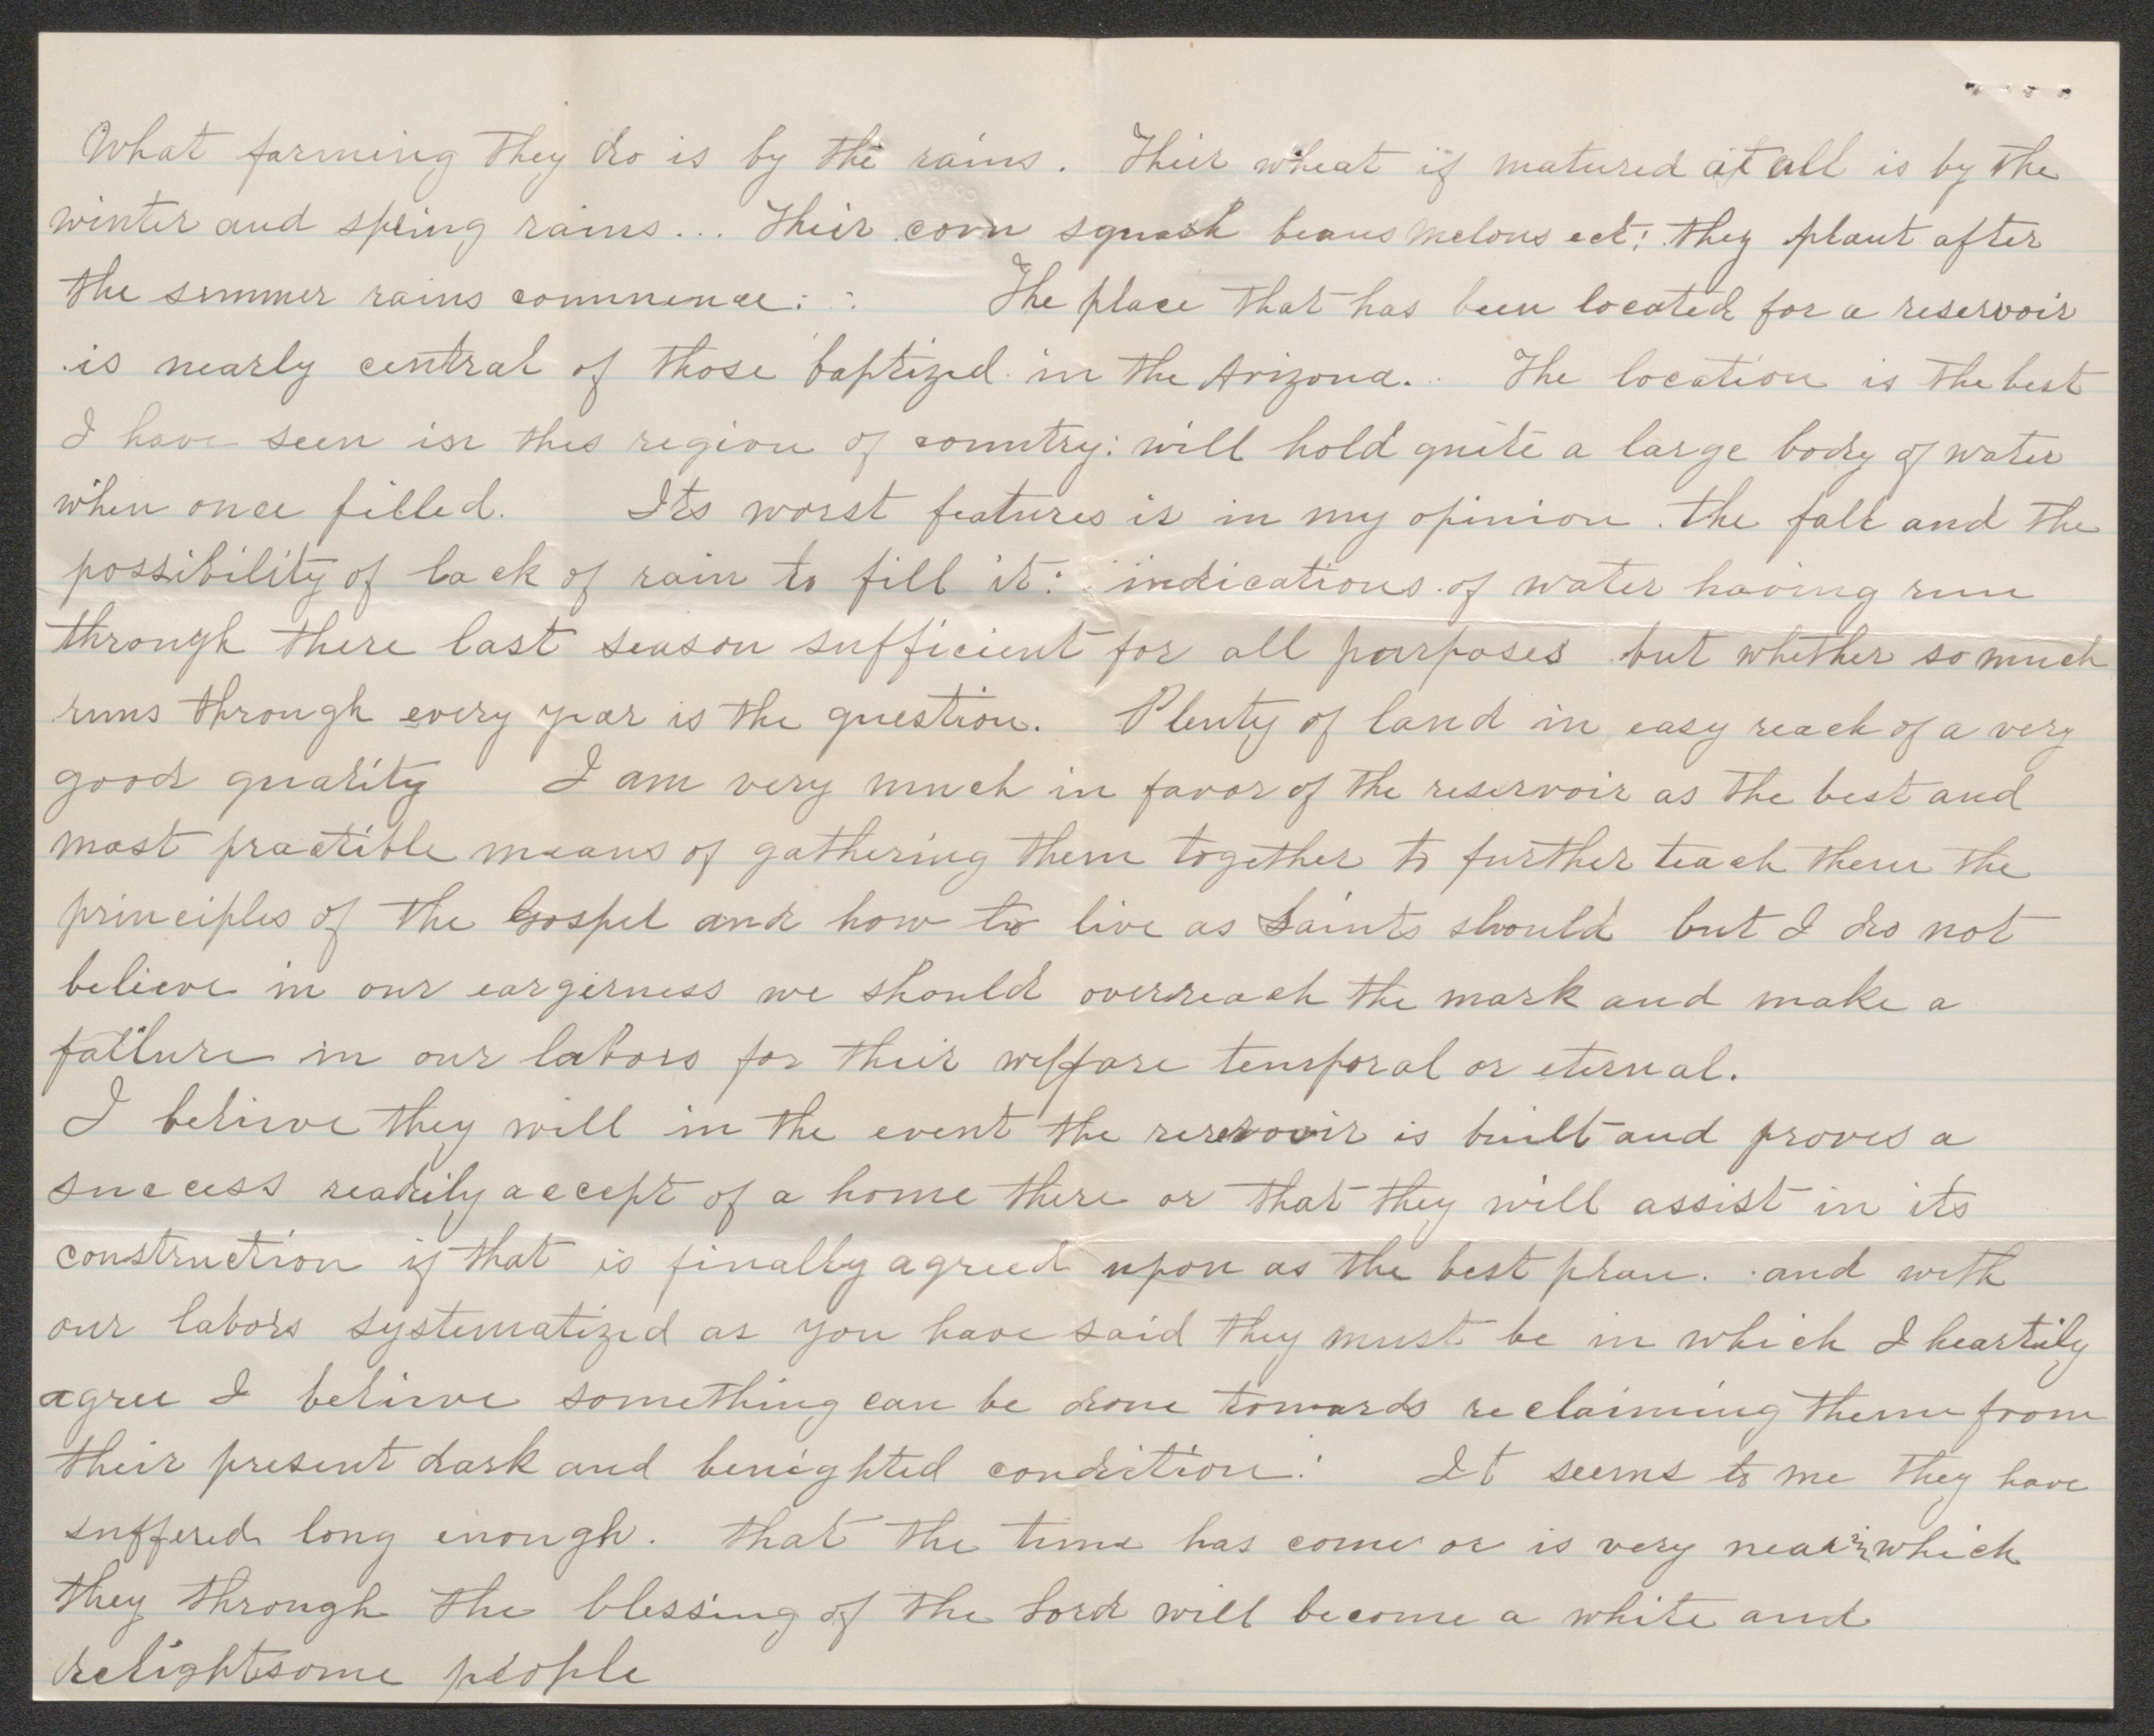 What farming they do is by the rains. Their wheat if matured at all is by the
winter and spring rains... Their corn squash beans melons ect; they plant after
the summer rains commence: : The place that has been located for a reservoir
is nearly central of those baptized in the Arizona. The location is the best
I have seen in this region of country: will hold quite a large body of water
when once filled. Its worst features is in my opinion. the fall and the
possibility of lack of rain to fill it: indications of water having run
through there last season sufficient for all purposes but whether so much
runs through every year is the question. Plenty of land in easy reach of a very
good quality I am very much in favor of the reservoir as the best and
most practible means of gathering them together to further teach them the
principles of the Gospel and how to live as Saints should but I do not
believe in our eargerness we should overreach the mark and make a
failure in our labors for their welfare temporal or eternal.
I believe they will in the event the reservoir is built and proves a
success readily accept of a home there or that they will assist in its
construction if that is finally agreed upon as the best plan. and with
our labors systematized as you have said they must be in which I heartily
agree I believe something can be done towards reclaiming them from
their present dark and benighted condition: It seems to me they have
suffered long enough. that the time has come or is very near in which
they through the blessing of the Lord will become a white and
delightsome people